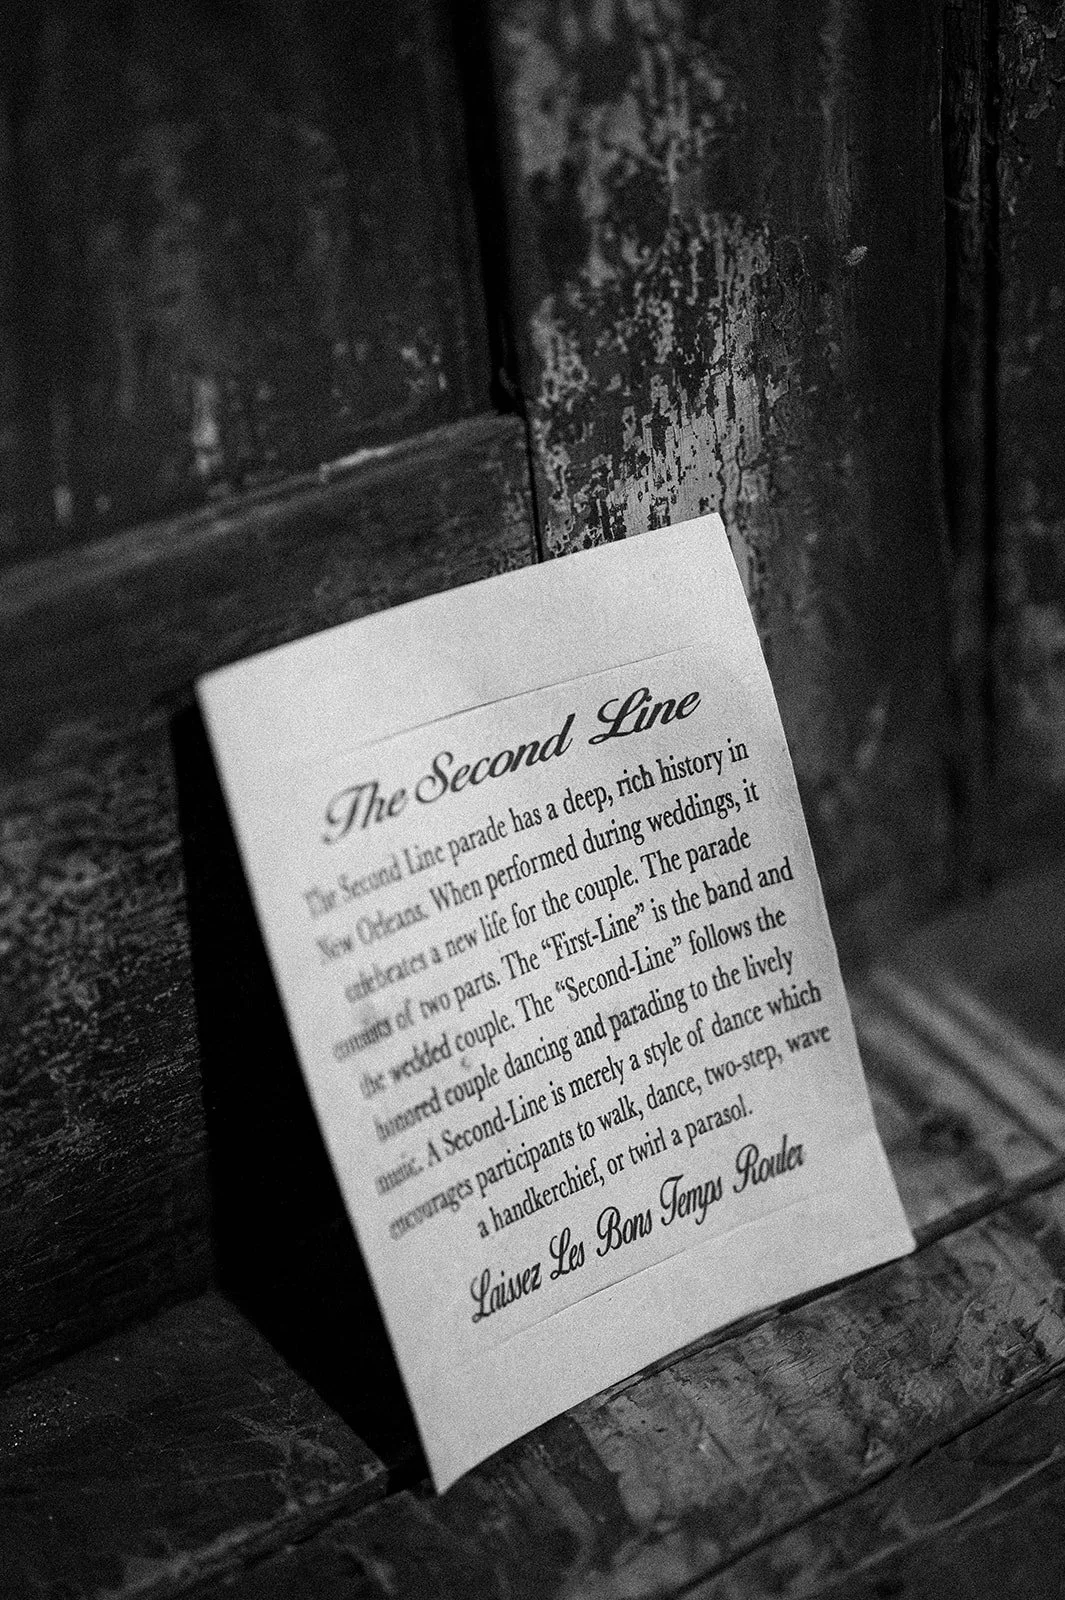 The Second Line
The Second Line parade has a deep, rich history in
New Orleans. When performed during weddings, it
celebrates a new life for the couple. The parade
consists of two parts. The “First-Line” is the band and
the wedded couple. The “Second-Line” follows the
honored couple dancing and parading to the lively
music. A Second-Line is merely a style of dance which
encourages participants to walk, dance, two-step, wave
a handkerchief, or twirl a parasol.
Laissez Les Bons Temps Rouler